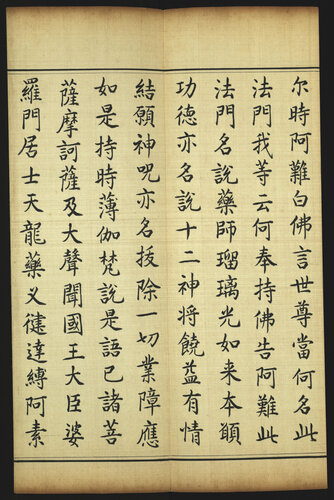 尔時阿難白佛言世尊當何名此
法門我等云何奉持佛告阿難此
法門名說藥師瑠璃光如来本願
功德亦名說十二神将饒益有情
結願神咒亦名拔除一切業障應
如是持時薄伽梵說是語已諸菩
薩摩訶薩及大聲聞國王大臣婆
羅門居士天龍藥义揵達縛阿素